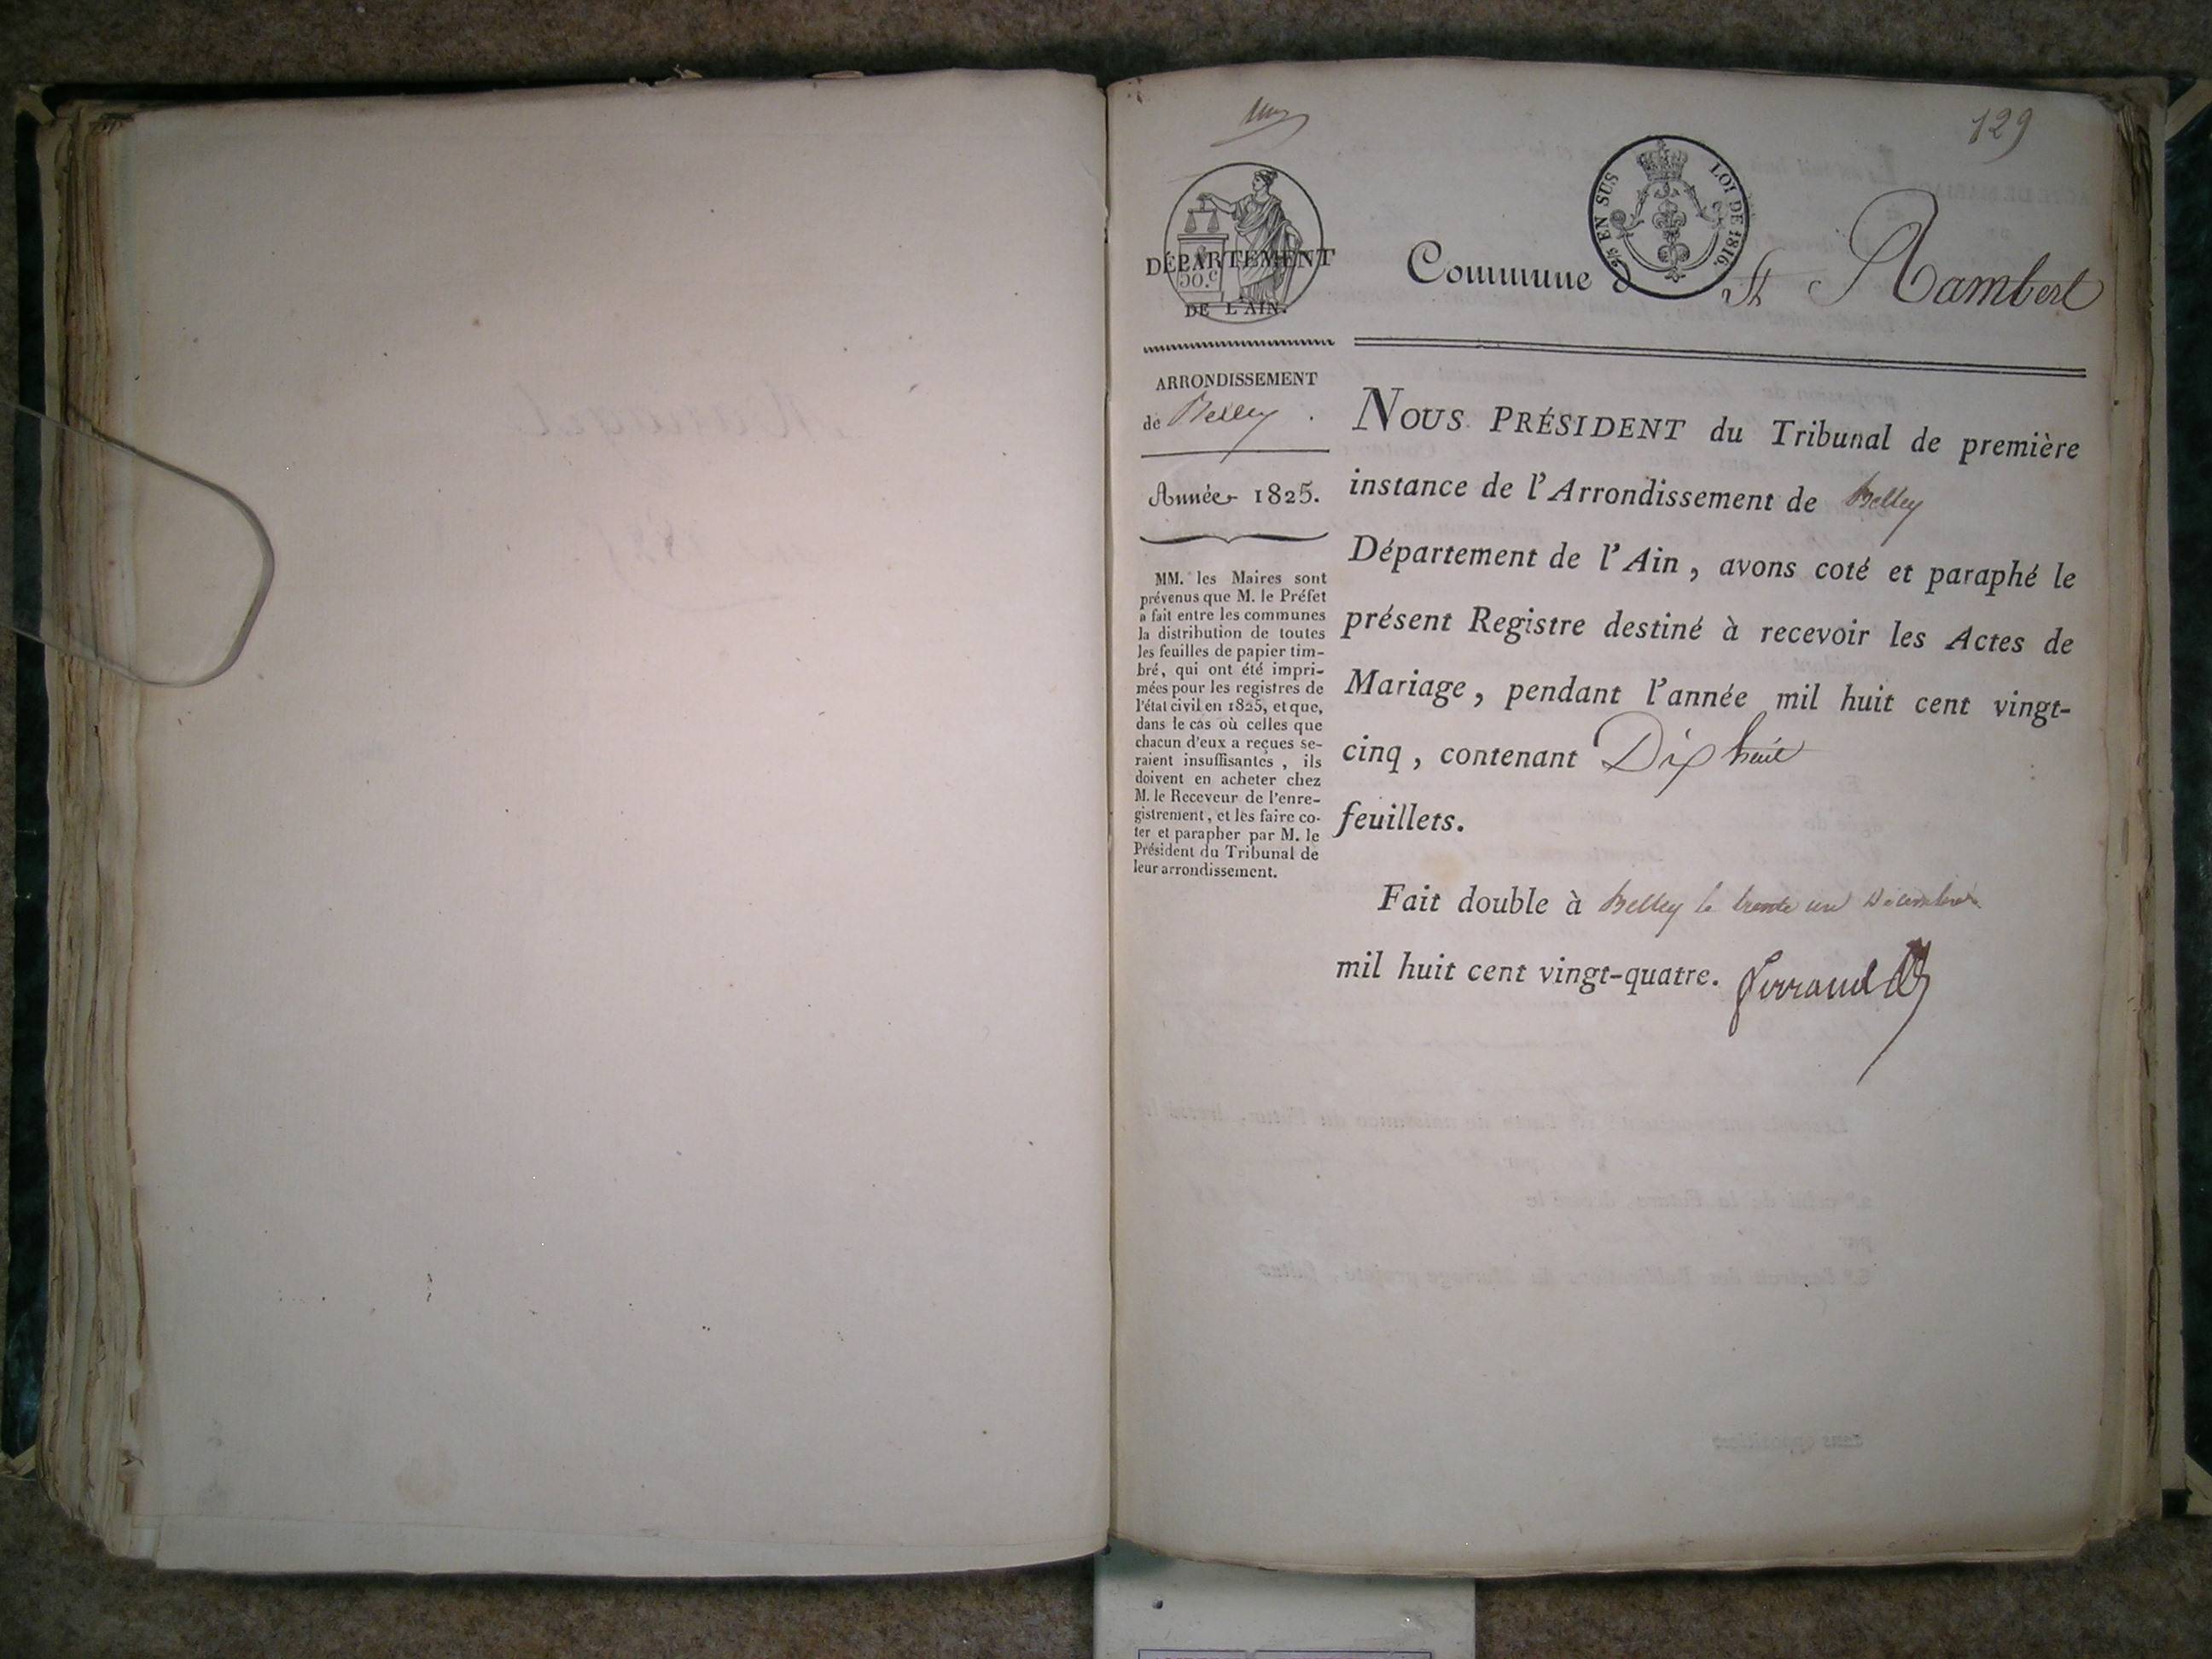 129
DÉPARTEMENT
50.c
DE L'AIN.
2/5 EN SUS LOI DE 1816.
Commune d St Rambert
ARRONDISSEMENT
de Belley.
Année 1825.
MM. les Maires sont
prévenus que M. le Préfet
a fait entre les communes
la distribution de toutes
les feuilles de papier tim-
bré, qui ont été impri-
mées pour les registres de
l'état civil en 1825, et que,
dans le cas où celles que
chacun d'eux a reçues se-
raient insuffisantes, ils
doivent en acheter chez
M. le Receveur de l'enre-
gistrement, et les faire co-
ter et parapher par M. le
Président du Tribunal de
leur arrondissement.
NOUS PRÉSIDENT du Tribunal de première
instance de l'Arrondissement de Belley
Département de l'Ain, avons coté et paraphé le
présent Registre destiné à recevoir les Actes de
Mariage, pendant l'année mil huit cent vingt-
cinq, contenant Dix huit
feuillets.
Fait double à Belley le trente un Décembre
mil huit cent vingt-quatre.